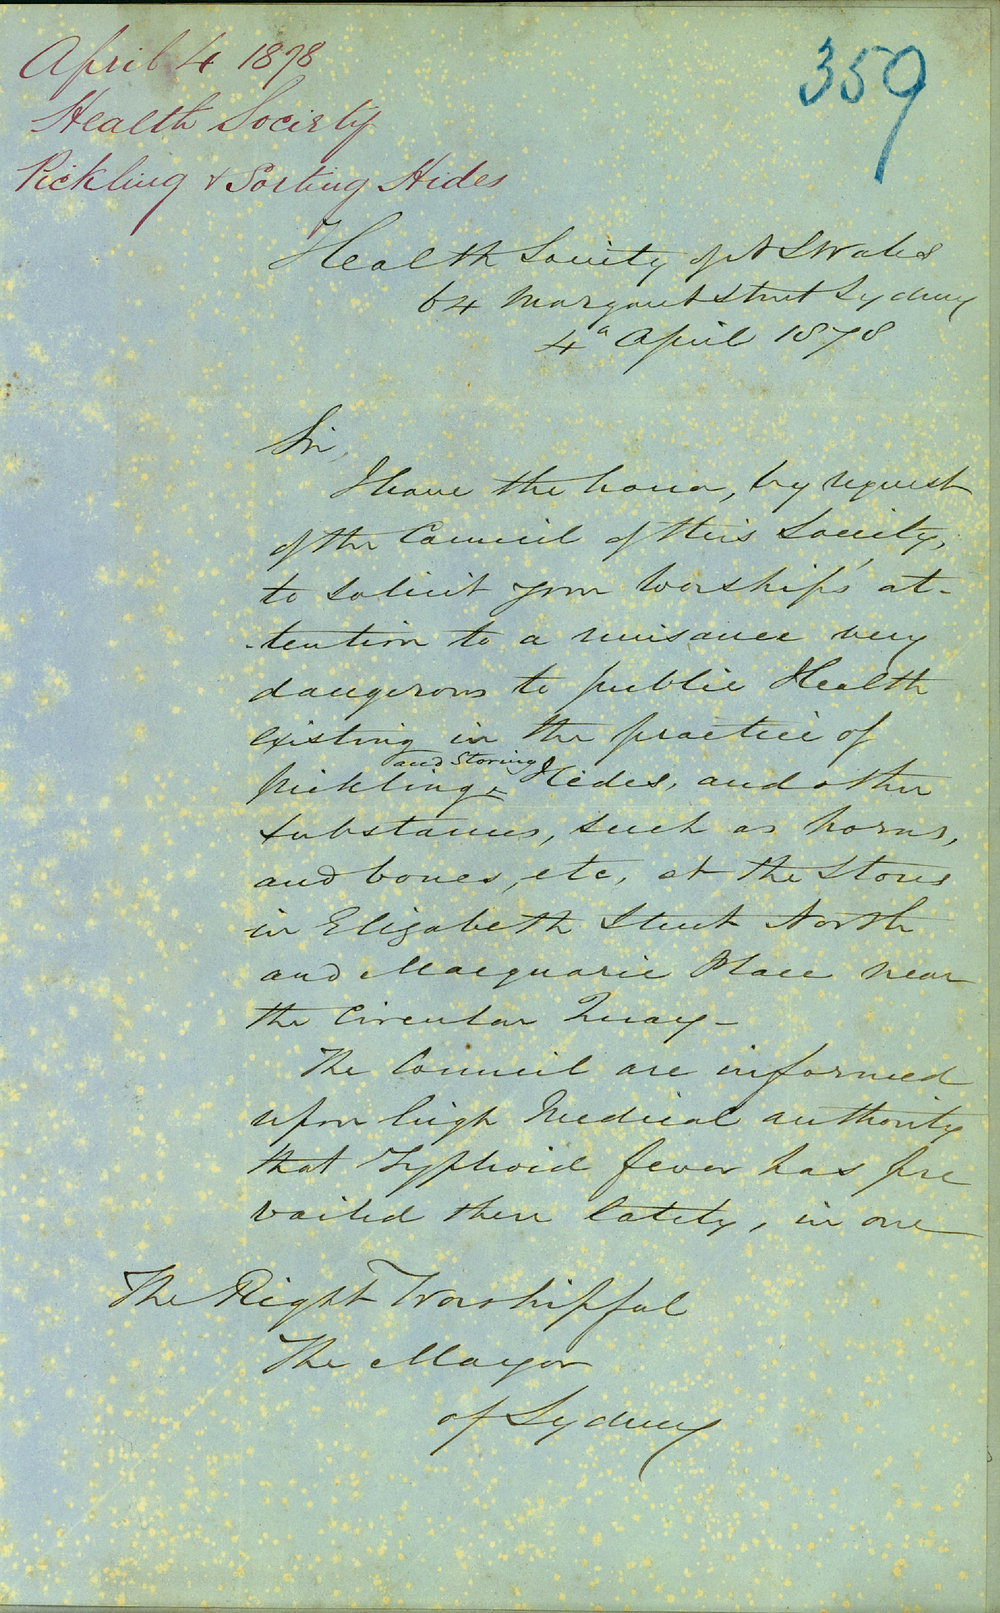 April 4 1878
359
Health Society
Pickling & Sorting Hides
Health Society of N S Wales
64 Margaret Street Sydney
4th April 1878
Sir,
I have the honor, by request
of the Council of this Society,
to solicit your Worship's at-
-tention to a nuisance very
dangerous to public Health
existing in the practice of
and Storing
Pickling Hides, and other
substances, such as horns,
and bones, etc, at the Stores
in Elizabeth Street North
and Macquarie Place near
the Circular Quay-
The Council are informed
upon high Medical authority
that Typhoid fever has pre
vailed there lately, in one
The Right Worshipful
The Mayor
of Sydney